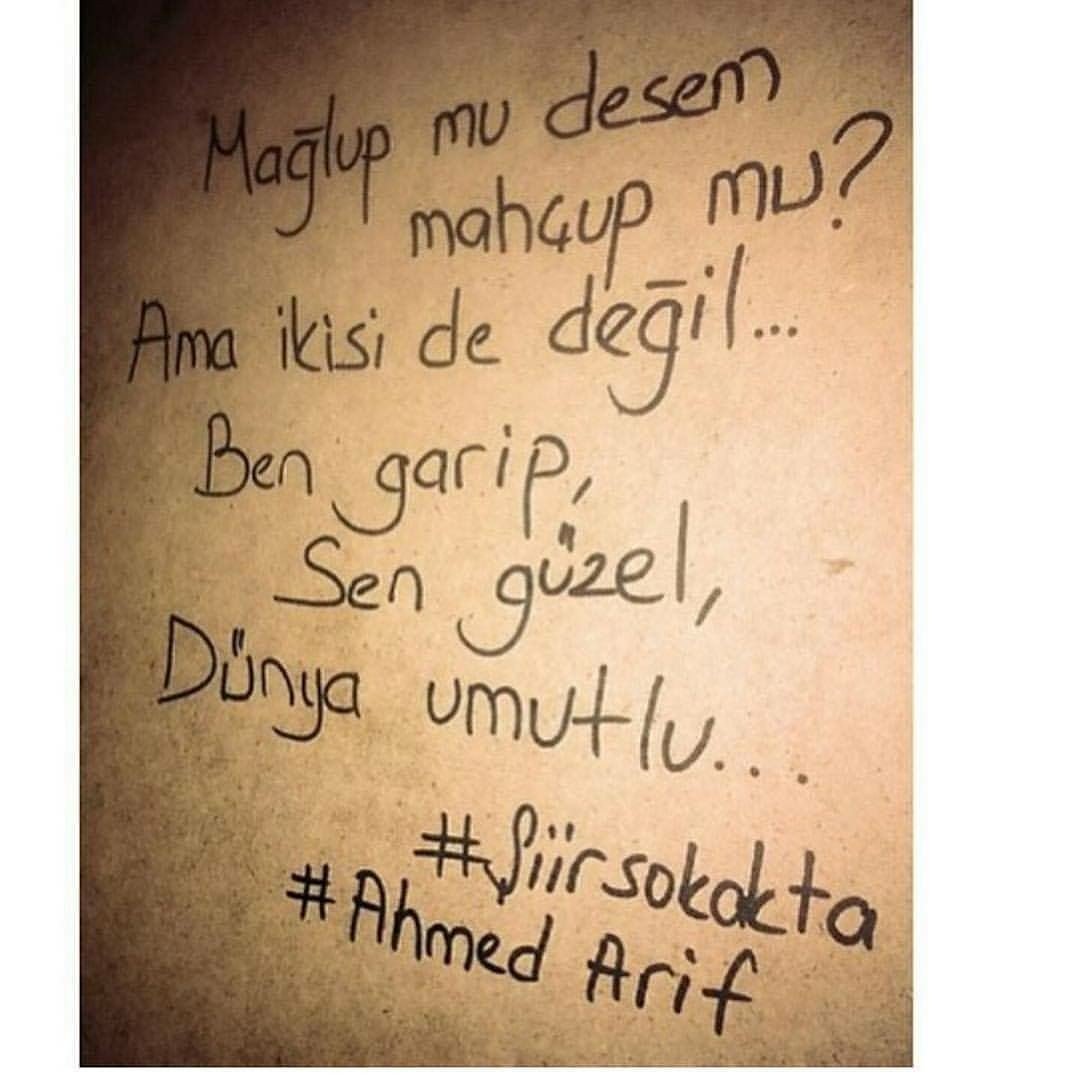 Mağlup mu desem
mahçup mu?
Ama ikisi de değil...
Ben garip,
Sen güzel,
Dünya umutlu...
#Şiirsokakta
#Ahmed Arif